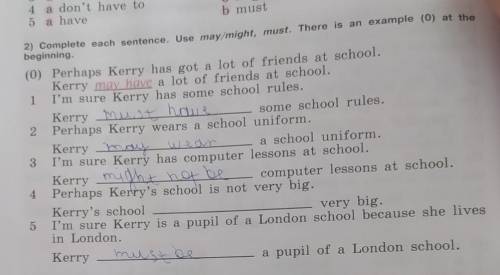 4 a don't have to
b must
5 a have
2) Complete each sentence. Use may/might, must. There is an example (0) at the
beginning.
(0) Perhaps Kerry has got a lot of friends at school.
Kerry may have a lot of friends at school.
1 I'm sure Kerry has some school rules.
Kerry must have some school rules.
2 Perhaps Kerry wears a school uniform.
Kerry may wear a school uniform.
3 I'm sure Kerry has computer lessons at school.
Kerry might not be computer lessons at school.
4 Perhaps Kerry's school is not very big.
Kerry's school very big.
5 I'm sure Kerry is a pupil of a London school because she lives
in London.
Kerry must be a pupil of a London school.